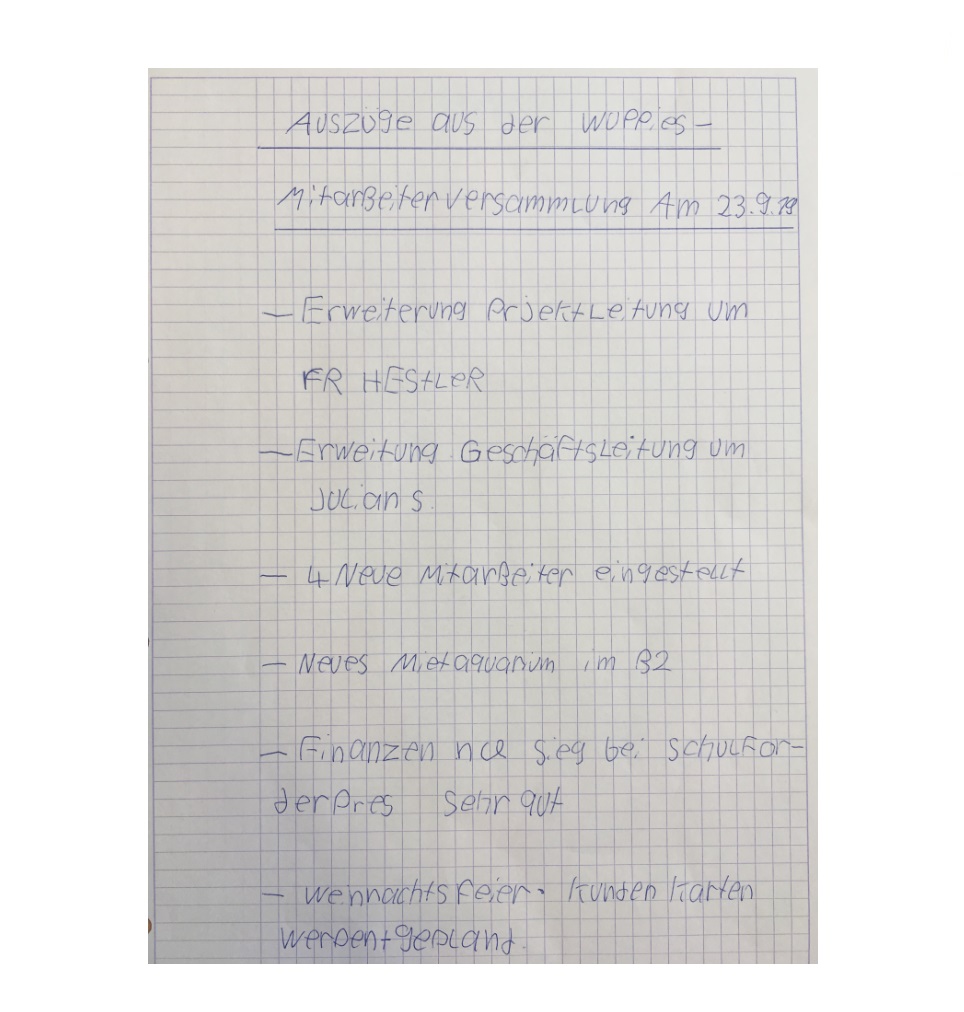 Auszüge aus der Wuppies-
Mitarbeiterversammlung Am 23.9.19
— Erweiterung Prjektleitung um
FR HEStLeR
— Erweitung Geschäftsleitung um
Julian S.
— 4 Neue Mitarbeiter eingestellt
— Neues Mietaquarium im B2
— Finanzen Sieg bei Schulför-
derpres sehr gut
— Wehnachtsfeier + Kunden Karten
werdent gepland.